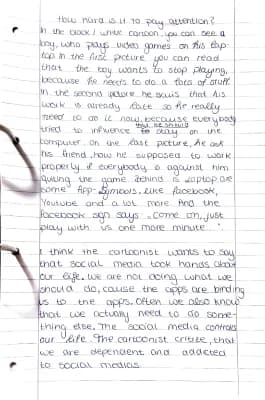 How hard is it to pay attention?
In the black/white cartoon, you can see a
boy, who plays video games on his lap-
top. In the first picture you can read
that the boy wants to stop playing,
because he needs to do a tons of stuff.
In the second picture he says that his
work is already late so he really
need to do it now, because everybody
tried to influence you he should stay on the
computer. On the last picture, he ask
his friend, how he supposed to work
properly if everybody is against him
During the game behind is laptop are
some App-Symbols, like facebook,
Youtube and a lot more. And the
facebook sign says "come on, just
play with us one more minute".
I think the cartoonist wants to say
that social media took hands about
our life. We are not doing what we
should do, cause the apps are binding
us to the apps. Often we also know
that we actually need to do some-
thing else. The social media controls
our life. The cartoonist critize, that
we are dependent and addicted
to social medias.